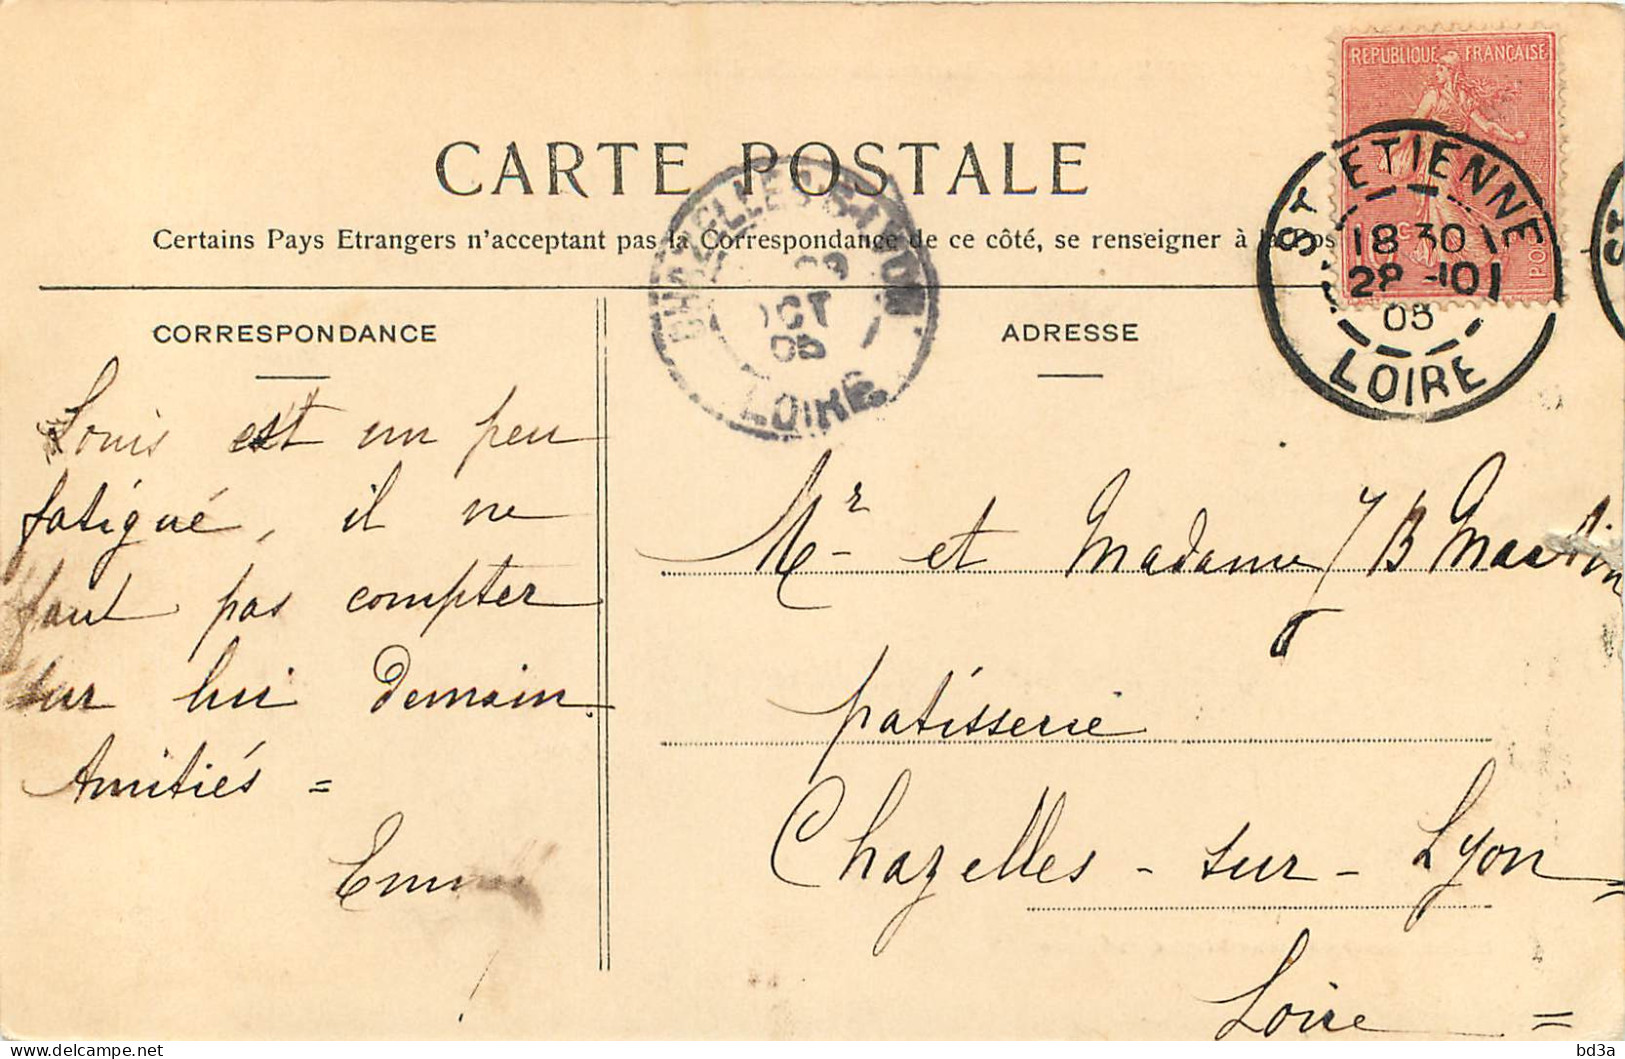 REPUBLIQUE FRANÇAISE
CARTE POSTALE
Certains Pays Etrangers n'acceptent pas la Correspondance de ce côté, se renseigner à la
ST ETIENNE
18 30
28 -10
05
LOIRE
CHAZELLES-S-LYON
OCT
05
LOIRE
CORRESPONDANCE
ADRESSE
Louis est un peu
fatigué, il ne
faut pas compter
sur lui demain.
Amitiés =
Mr et Madame J B Martin
patisserie
Chazelles - sur - Lyon =
Loire =
bd3a